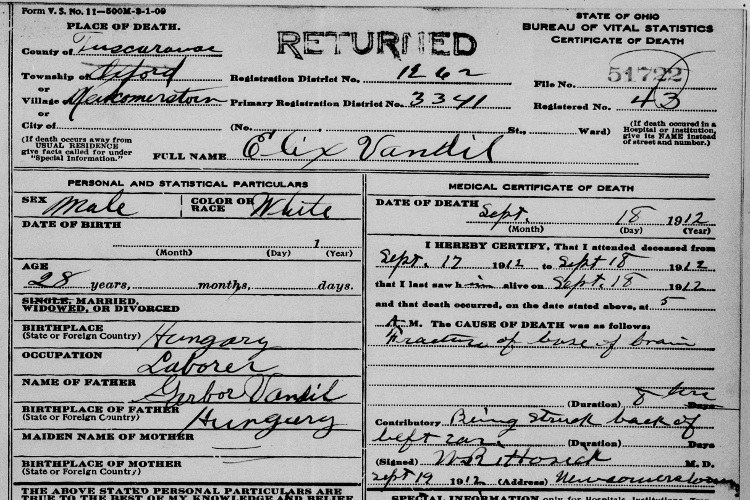 Form V. S. No. 11—500M-8-1-09
PLACE OF DEATH.
County of Tuscarawas
Township of Oxford
or
Village of Newcomerstown
or
City of
(If death occurs away from
USUAL RESIDENCE
give facts called for under
"Special Information.")
RETURNED
Registration District No. 1262
Primary Registration District No. 3341
(No. , St., Ward)
FULL NAME Elix Vandil
STATE OF OHIO
BUREAU OF VITAL STATISTICS
CERTIFICATE OF DEATH
File No. 51722
Registered No. 43
(If death occured in a
Hospital or institution,
give its NAME instead
of street and number.)
PERSONAL AND STATISTICAL PARTICULARS
SEX Male COLOR OR RACE White
DATE OF BIRTH
1
(Month) (Day) (Year)
AGE
28 years, months, days.
SINGLE, MARRIED,
WIDOWED, OR DIVORCED
BIRTHPLACE
(State or Foreign Country) Hungary
OCCUPATION Laborer
NAME OF FATHER Garbor Vandil
BIRTHPLACE OF FATHER
(State or Foreign Country) Hungary
MAIDEN NAME OF MOTHER
BIRTHPLACE OF MOTHER
(State or Foreign Country)
THE ABOVE STATED PERSONAL PARTICULARS ARE
TRUE TO THE BEST OF MY KNOWLEDGE AND BELIEF
MEDICAL CERTIFICATE OF DEATH
DATE OF DEATH Sept. 18 1912
(Month) (Day) (Year)
I HEREBY CERTIFY, That I attended deceased from
Sept. 17 1912 to Sept 18 1912
that I last saw him alive on Sept. 18 1912
and that death occurred, on the date stated above, at 5
A M. The CAUSE OF DEATH was as follows:
Fracture of base of brain
(Duration) 8 hrs Days
Contributory Being struck back of
left ear. (Duration) Days
(Signed) W.R. Hosick M. D.
Sept 19 1912 (Address) Newcomerstown
SPECIAL INFORMATION only for Hospitals, Institutions,